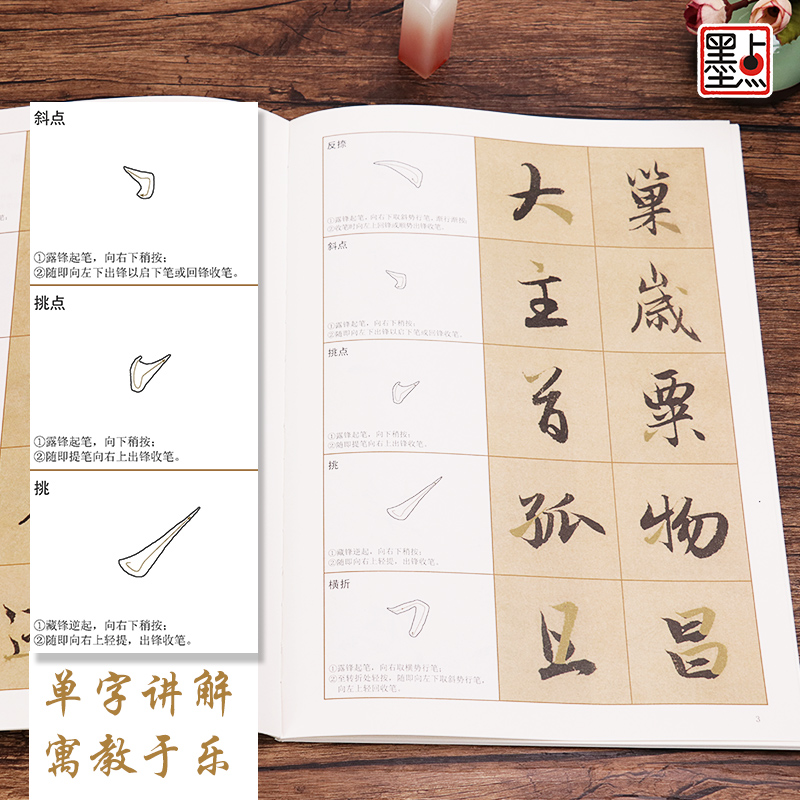 墨点
斜点
①露锋起笔，向右下稍按；
②随即向左下出锋以启下笔或回锋收笔。
挑点
①露锋起笔，向下稍按；
②随即提笔向右上出锋收笔。
挑
①藏锋逆起，向右下稍按；
②随即向右上轻提，出锋收笔。
单字讲解
寓教于乐
反捺
①露锋起笔，向右下取斜势行笔，渐行渐按；
②收笔时向左上回锋或顺势出锋收笔。
大
巢
斜点
①露锋起笔，向右下稍按；
②随即向左下出锋以启下笔或回锋收笔。
主
歲
挑点
①露锋起笔，向下稍按；
②随即提笔向右上出锋收笔。
首
粟
挑
①藏锋逆起，向右下稍按；
②随即向右上轻提，出锋收笔。
孤
物
横折
①露锋起笔，向右取横势行笔；
②至转折处轻按，随即向左下取斜势行笔，
向左上轻回收笔。
且
昌
3